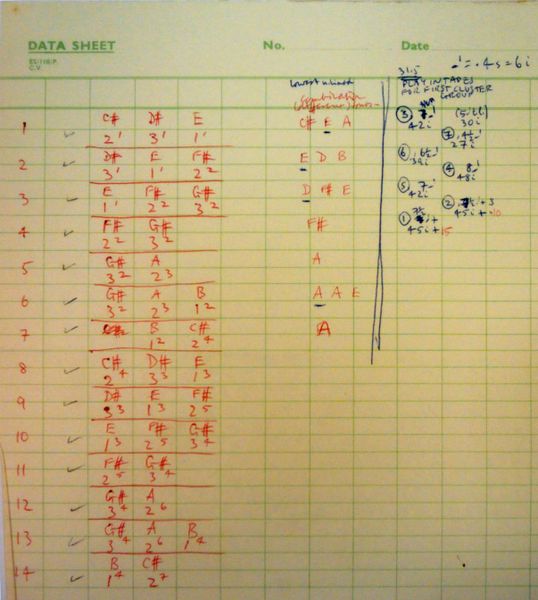 DATA SHEET No. Date
C.V.
31.5 = .4s = 6i
Lowest
PLAY IN TAPES
FOR FIRST CLUSTER
GROUP
1 C# D# E C# E A
2' 3' 1'
③ 42i 30i
27i
2 D# E F# E D B
3' 1' 2²
⑥ 39i
④ 8 48i
3 E F# G# D F# E
1' 2² 3²
⑤ 7 42i
② 45i +
4 F# G# F#
2² 3²
① 45i + 15
5 G# A A
3² 2³
6 G# A B A A E
3² 2³ 1²
7 B C# A
1² 2⁴
8 C# D# E
2⁴ 3³ 1³
9 D# E F#
3³ 1³ 2⁵
10 E F# G#
1³ 2⁵ 3⁴
11 F# G#
2⁵ 3⁴
12 G# A
3⁴ 2⁶
13 G# A B
3⁴ 2⁶ 1⁴
14 B C#
1⁴ 2⁷